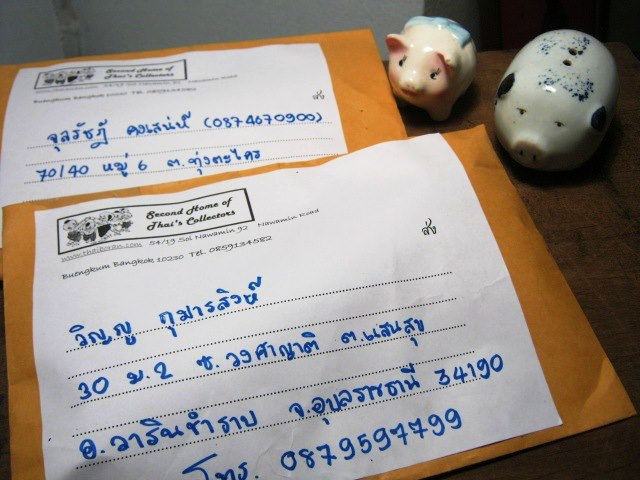 Second Home of
Thai's Collectors
54/19 Soi Nawamin 92 Nawamin Road
Buengkum Bangkok 10230 Tel. 0859134582
ส่ง
จุลรัชฎ์ คงเสน่ห์ (0874670900)
70/40 หมู่ 6 ต.ทุ่งตะไคร
Second Home of
Thai's Collectors
www.thaiboran.com 54/19 Soi Nawamin 92 Nawamin Road
Buengkum Bangkok 10230 Tel. 0859134582
ส่ง
วิญญู กุมารสิงห์
30 ม.2 ซ.วงศาญาติ ต.แสนสุข
อ.วารินชำราบ จ.อุบลราชธานี 34190
โทร. 0879597799